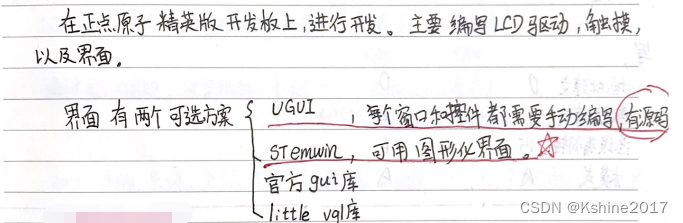 在正点原子精英版开发板上,进行开发。主要编写LCD驱动,触摸,
以及界面。
界面有两个可选方案
UGUI ,每个窗口和控件都需要手动编写,有源码
STemwin,可用图形化界面。
官方gui库
little vgl库
CSDN @Kshine2017